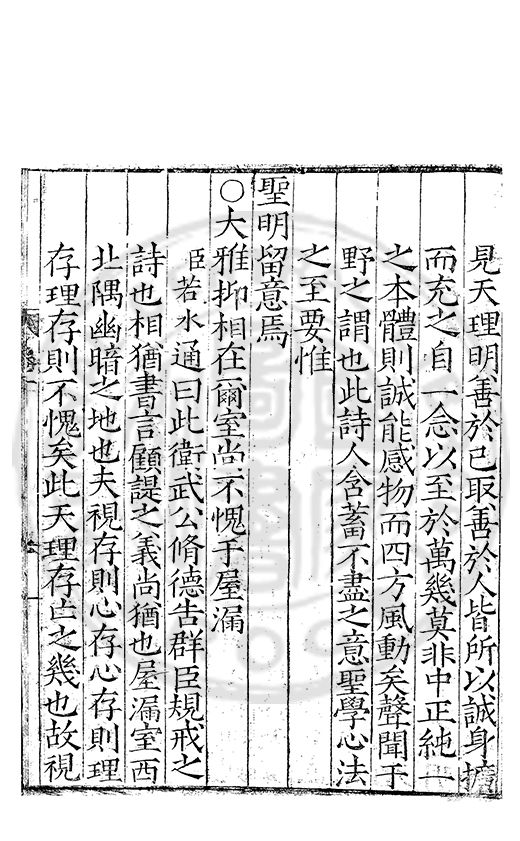 見天理明善於己取善於人皆所以誠身擴
而充之自一念以至於萬幾莫非中正純一
之本體則誠能感物而四方風動矣聲聞于
野之謂也此詩人含蓄不盡之意聖學心法
之至要惟
聖明留意焉
○大雅抑相在爾室尚不愧于屋漏
臣若水通曰此衛武公脩德告群臣規戒之
詩也相猶書言顧諟之義尚猶也屋漏室西
北隅幽暗之地也夫視存則心存心存則理
存理存則不愧矣此天理存亡之幾也故視